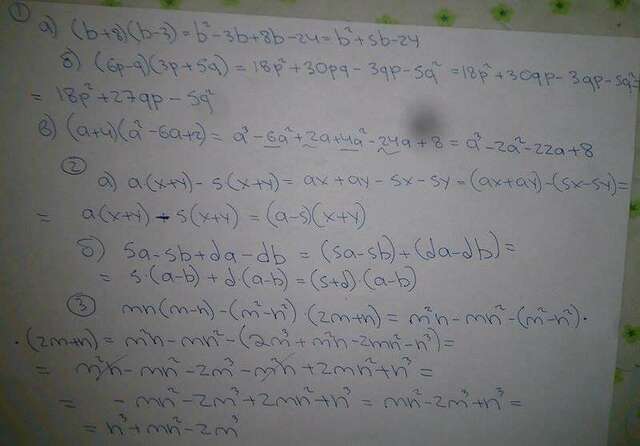 ① а) (b+8)(b-3) = b² - 3b + 8b - 24 = b² + 5b - 24
б) (6p-q)(3p+5q) = 18p² + 30pq - 3qp - 5q² = 18p² + 30qp - 3qp - 5q² =
= 18p² + 27qp - 5q²
в) (a+4)(a² - 6a + 2) = a³ - 6a² + 2a + 4a² - 24a + 8 = a³ - 2a² - 22a + 8
②
а) a(x+y) - 5(x+y) = ax + ay - 5x - 5y = (ax+ay) - (5x-5y) =
= a(x+y) - 5(x+y) = (a-5)(x+y)
б) 5a - 5b + da - db = (5a-5b) + (da-db) =
= 5·(a-b) + d(a-b) = (5+d)·(a-b)
③ mn(m-n) - (m²-n²)·(2m+n) = m²n - mn² - (m²-n²)·
·(2m+n) = m²n - mn² - (2m³ + m²n - 2mn² - n³) =
= m²n - mn² - 2m³ - m²n + 2mn² + n³ =
= - mn² - 2m³ + 2mn² + n³ = mn² - 2m³ + n³ =
= n³ + mn² - 2m³